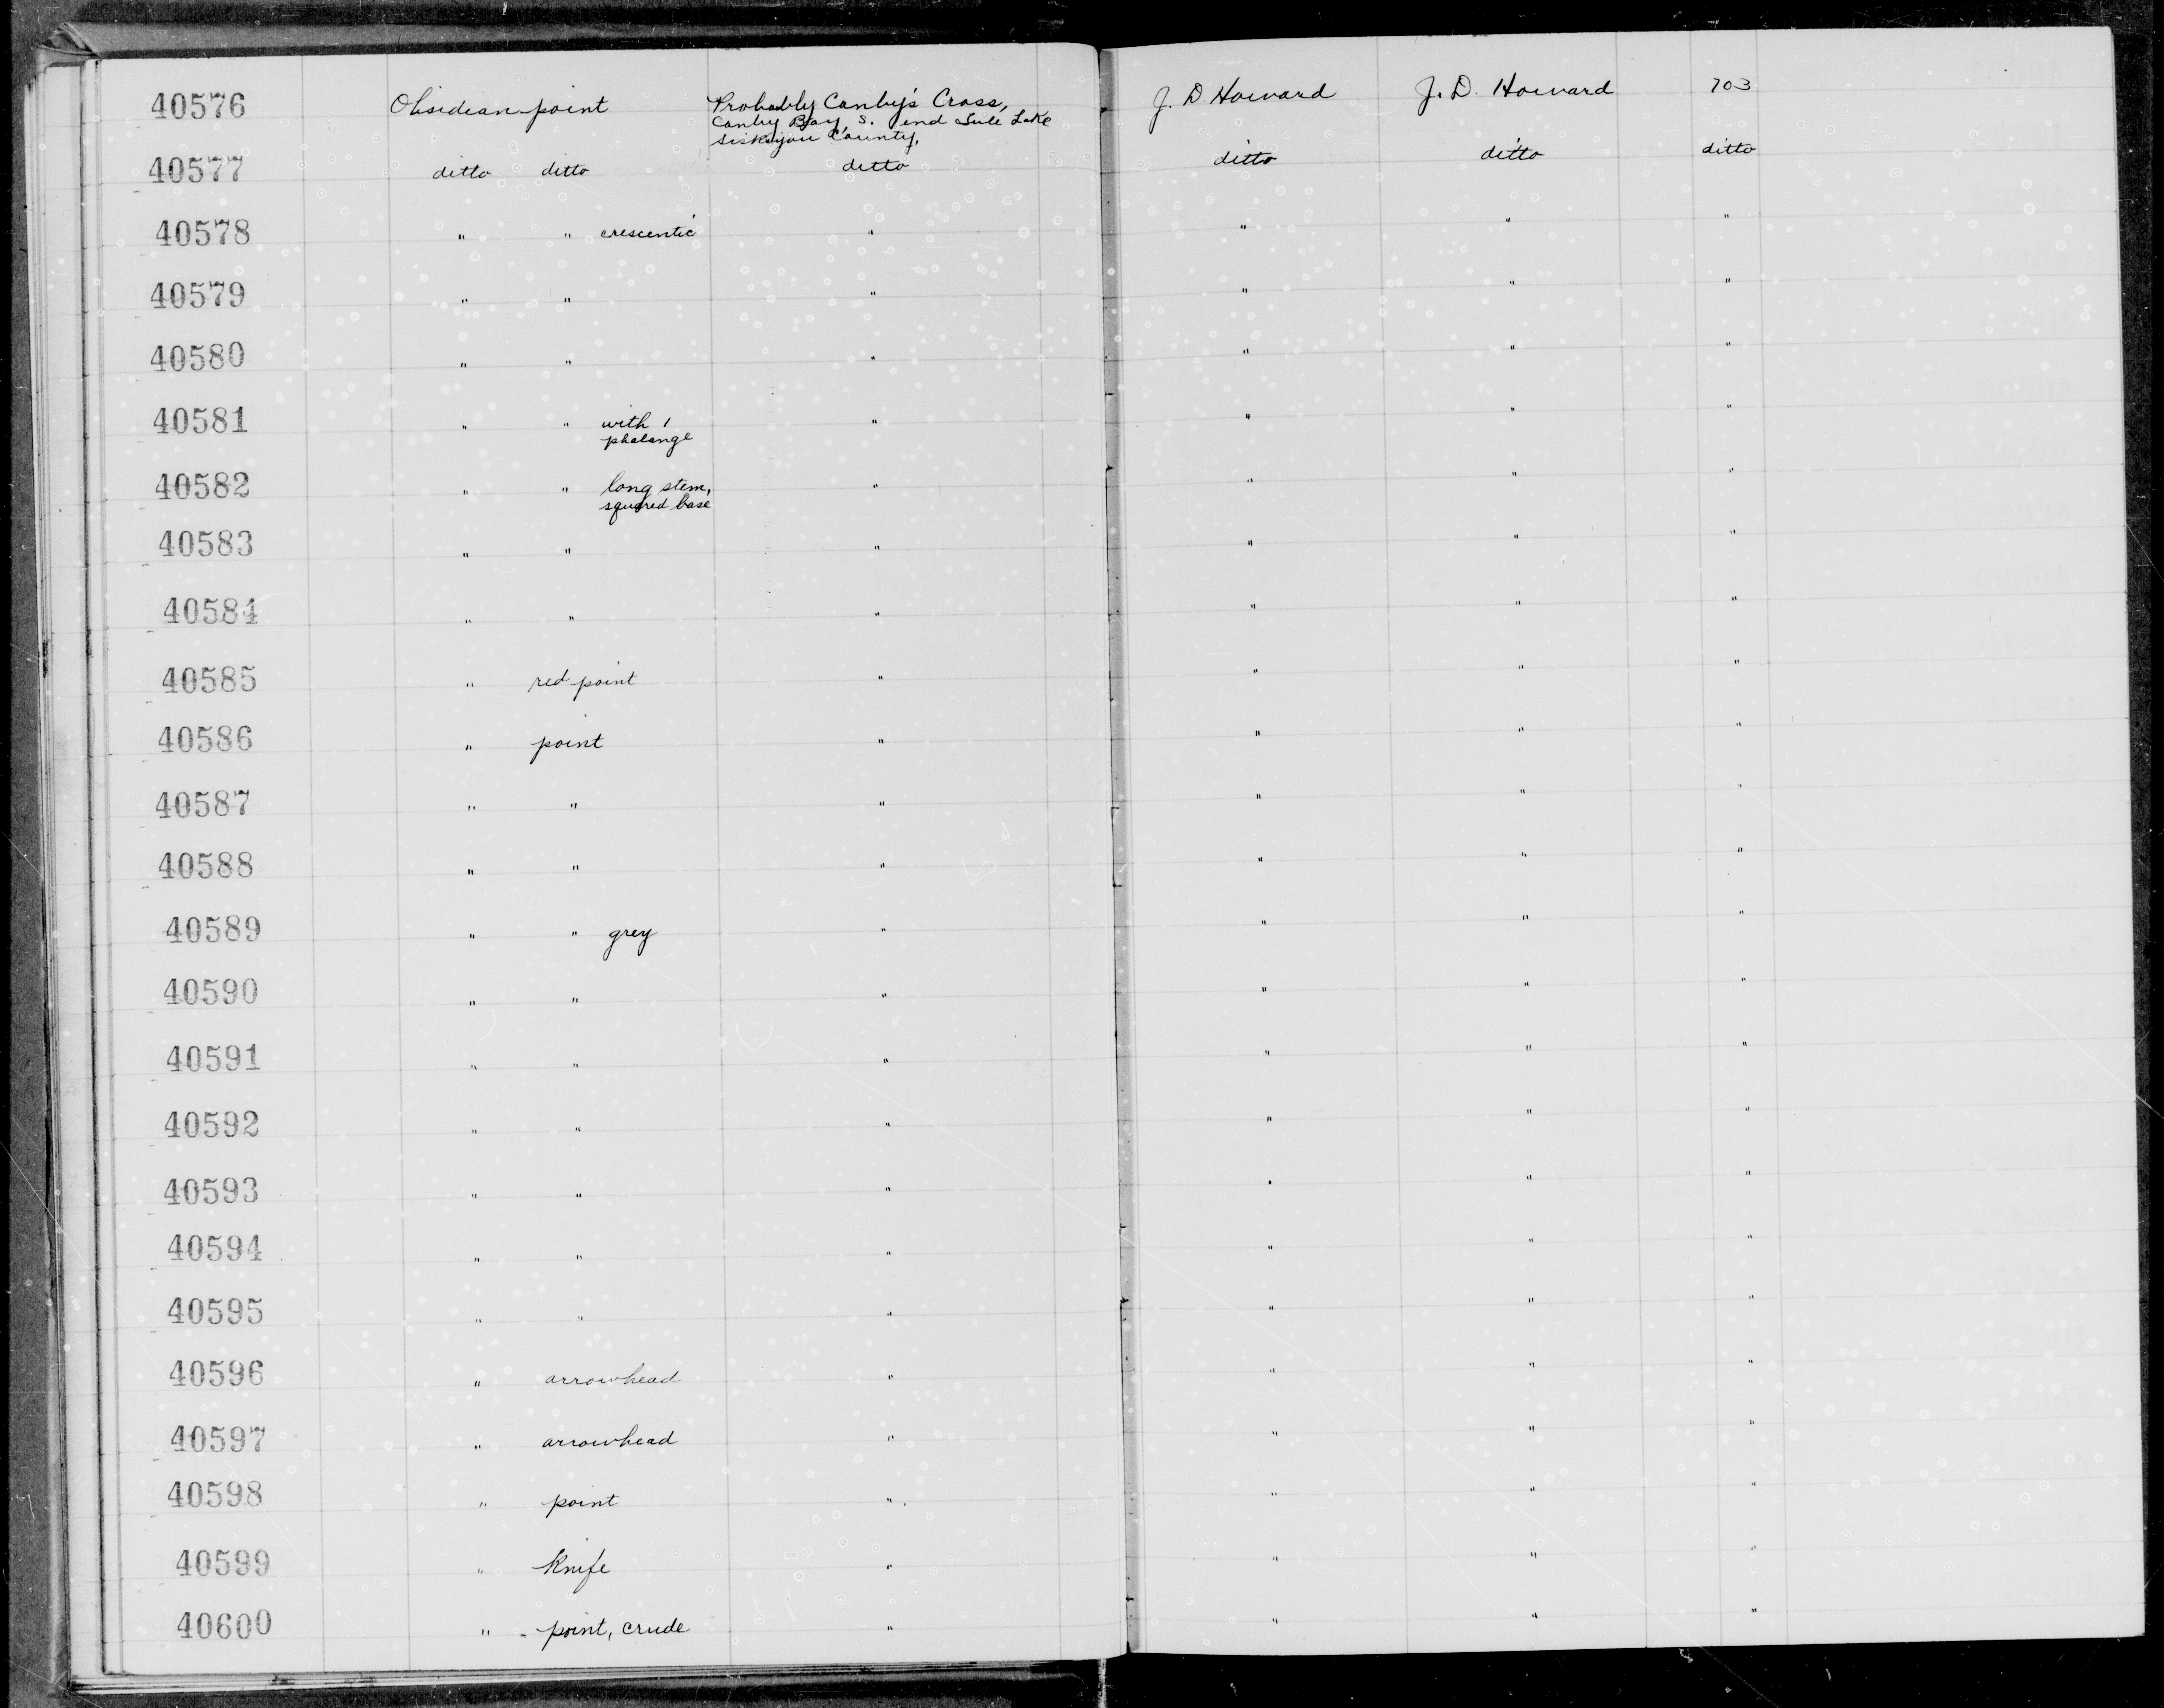 40576 Obsidian point Probably Canby's Cross, J. D. Howard J. D. Howard 703
Canby Bay, S. end Tule Lake
Siskiyou County,
40577 ditto ditto ditto ditto ditto ditto
40578 " " crescentic " " " "
40579 " " " " " "
40580 " " " " " "
40581 " " with 1 " " " "
phalange
40582 " " long stem, " " " "
squared base
40583 " " " " " "
40584 " " " " " "
40585 " red point " " " "
40586 " point " " " "
40587 " " " " " "
40588 " " " " " "
40589 " " grey " " " "
40590 " " " " " "
40591 " " " " " "
40592 " " " " " "
40593 " " " " " "
40594 " " " " " "
40595 " " " " " "
40596 " arrowhead " " " "
40597 " arrowhead " " " "
40598 " point " " " "
40599 " Knife " " " "
40600 " point, crude " " " "